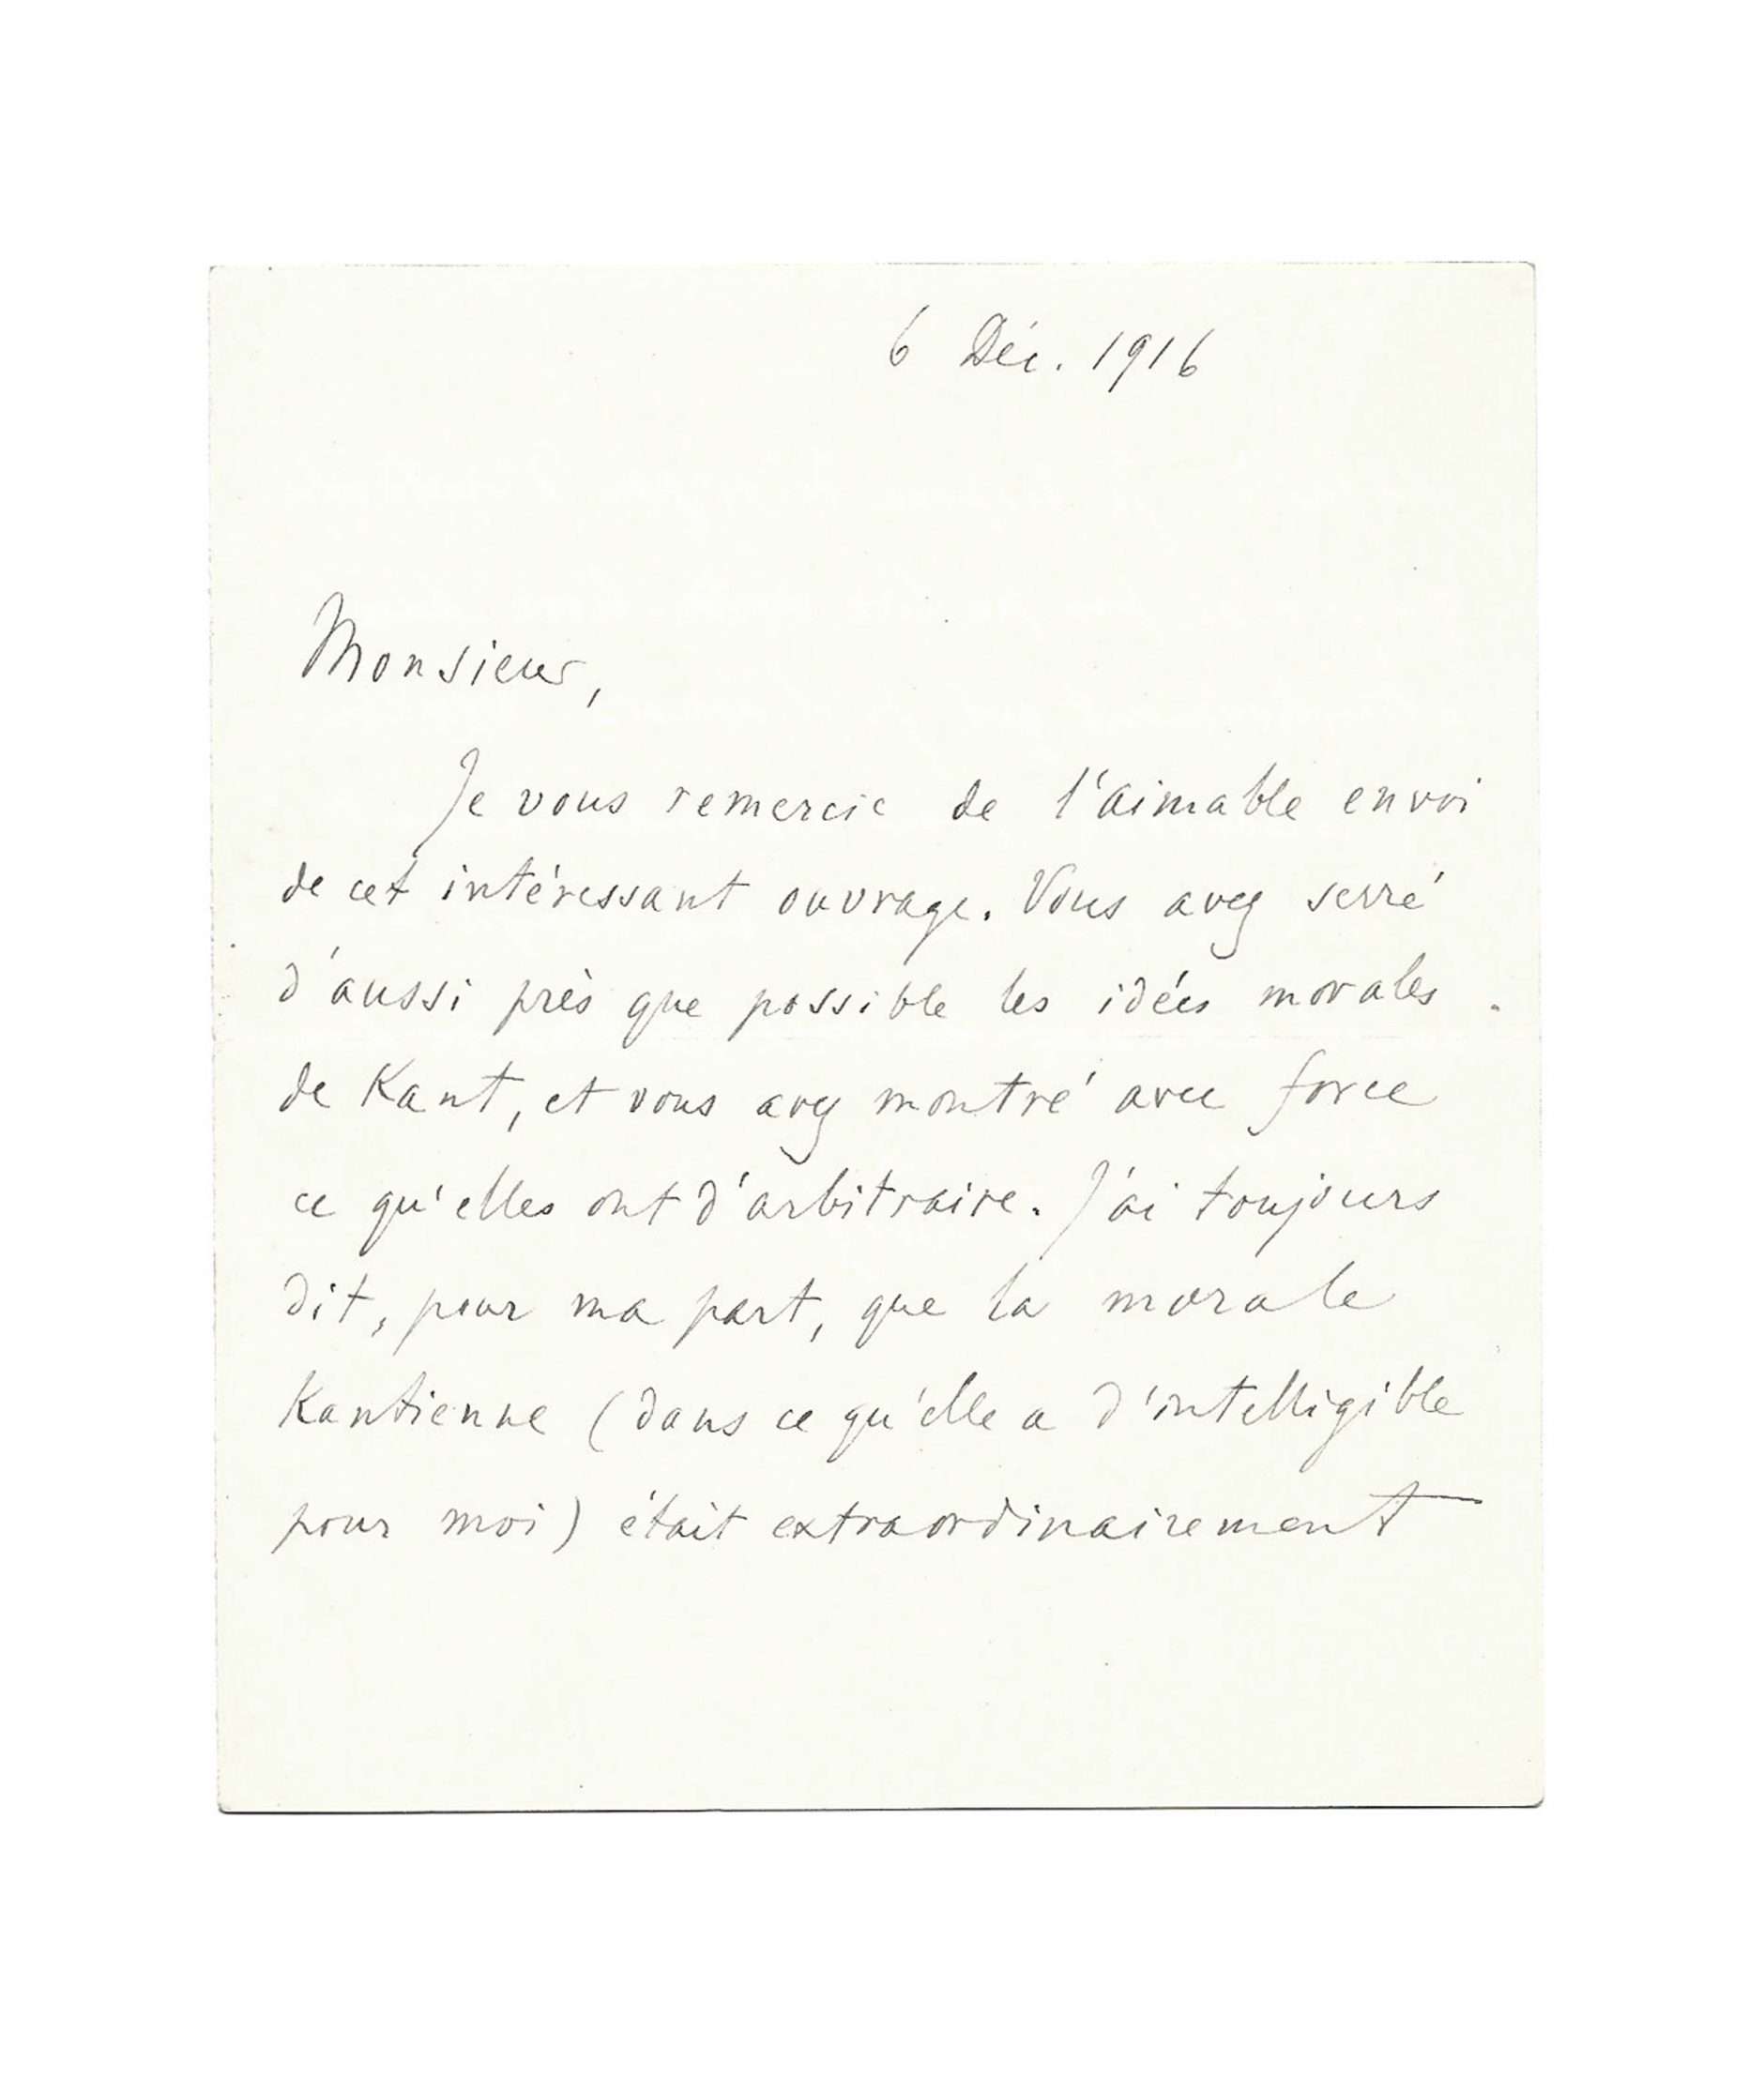 6 Déc. 1916
Monsieur,
Je vous remercie de l'aimable envoi
de cet intéressant ouvrage. Vous avez serré
d'aussi près que possible les idées morales
de Kant, et vous avez montré avec force
ce qu'elles ont d'arbitraire. J'ai toujours
dit, pour ma part, que la morale
Kantienne (dans ce qu'elle a d'intelligible
pour moi) était extraordinairement